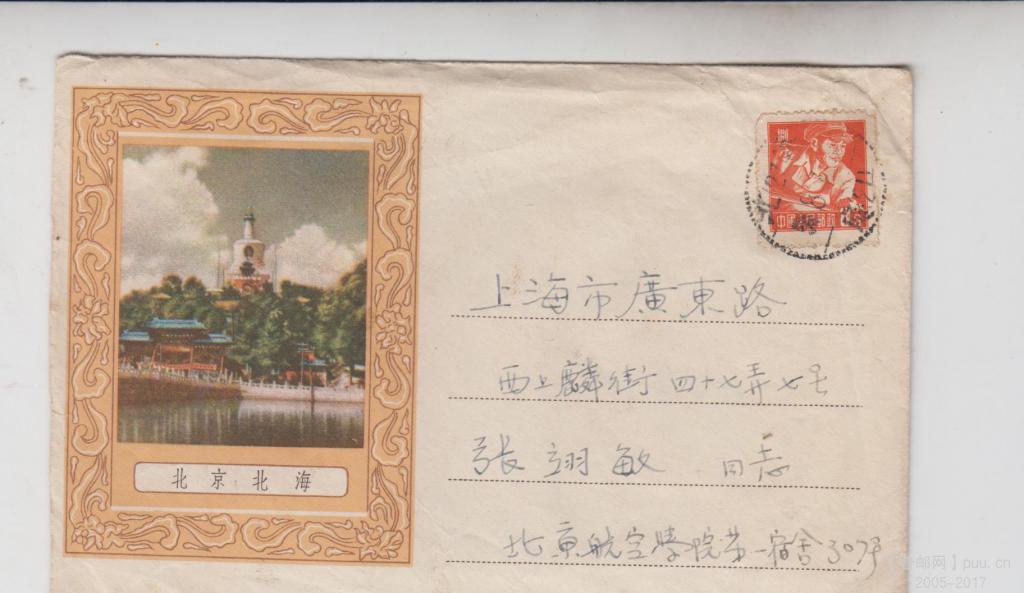 捌
中国人民邮政
8分
上海市廣東路
西上麟街四十七弄七号
張翊敏 同志
北京航空學院第一宿舍307号
北京北海
邮网】puu.cn
2005-2017